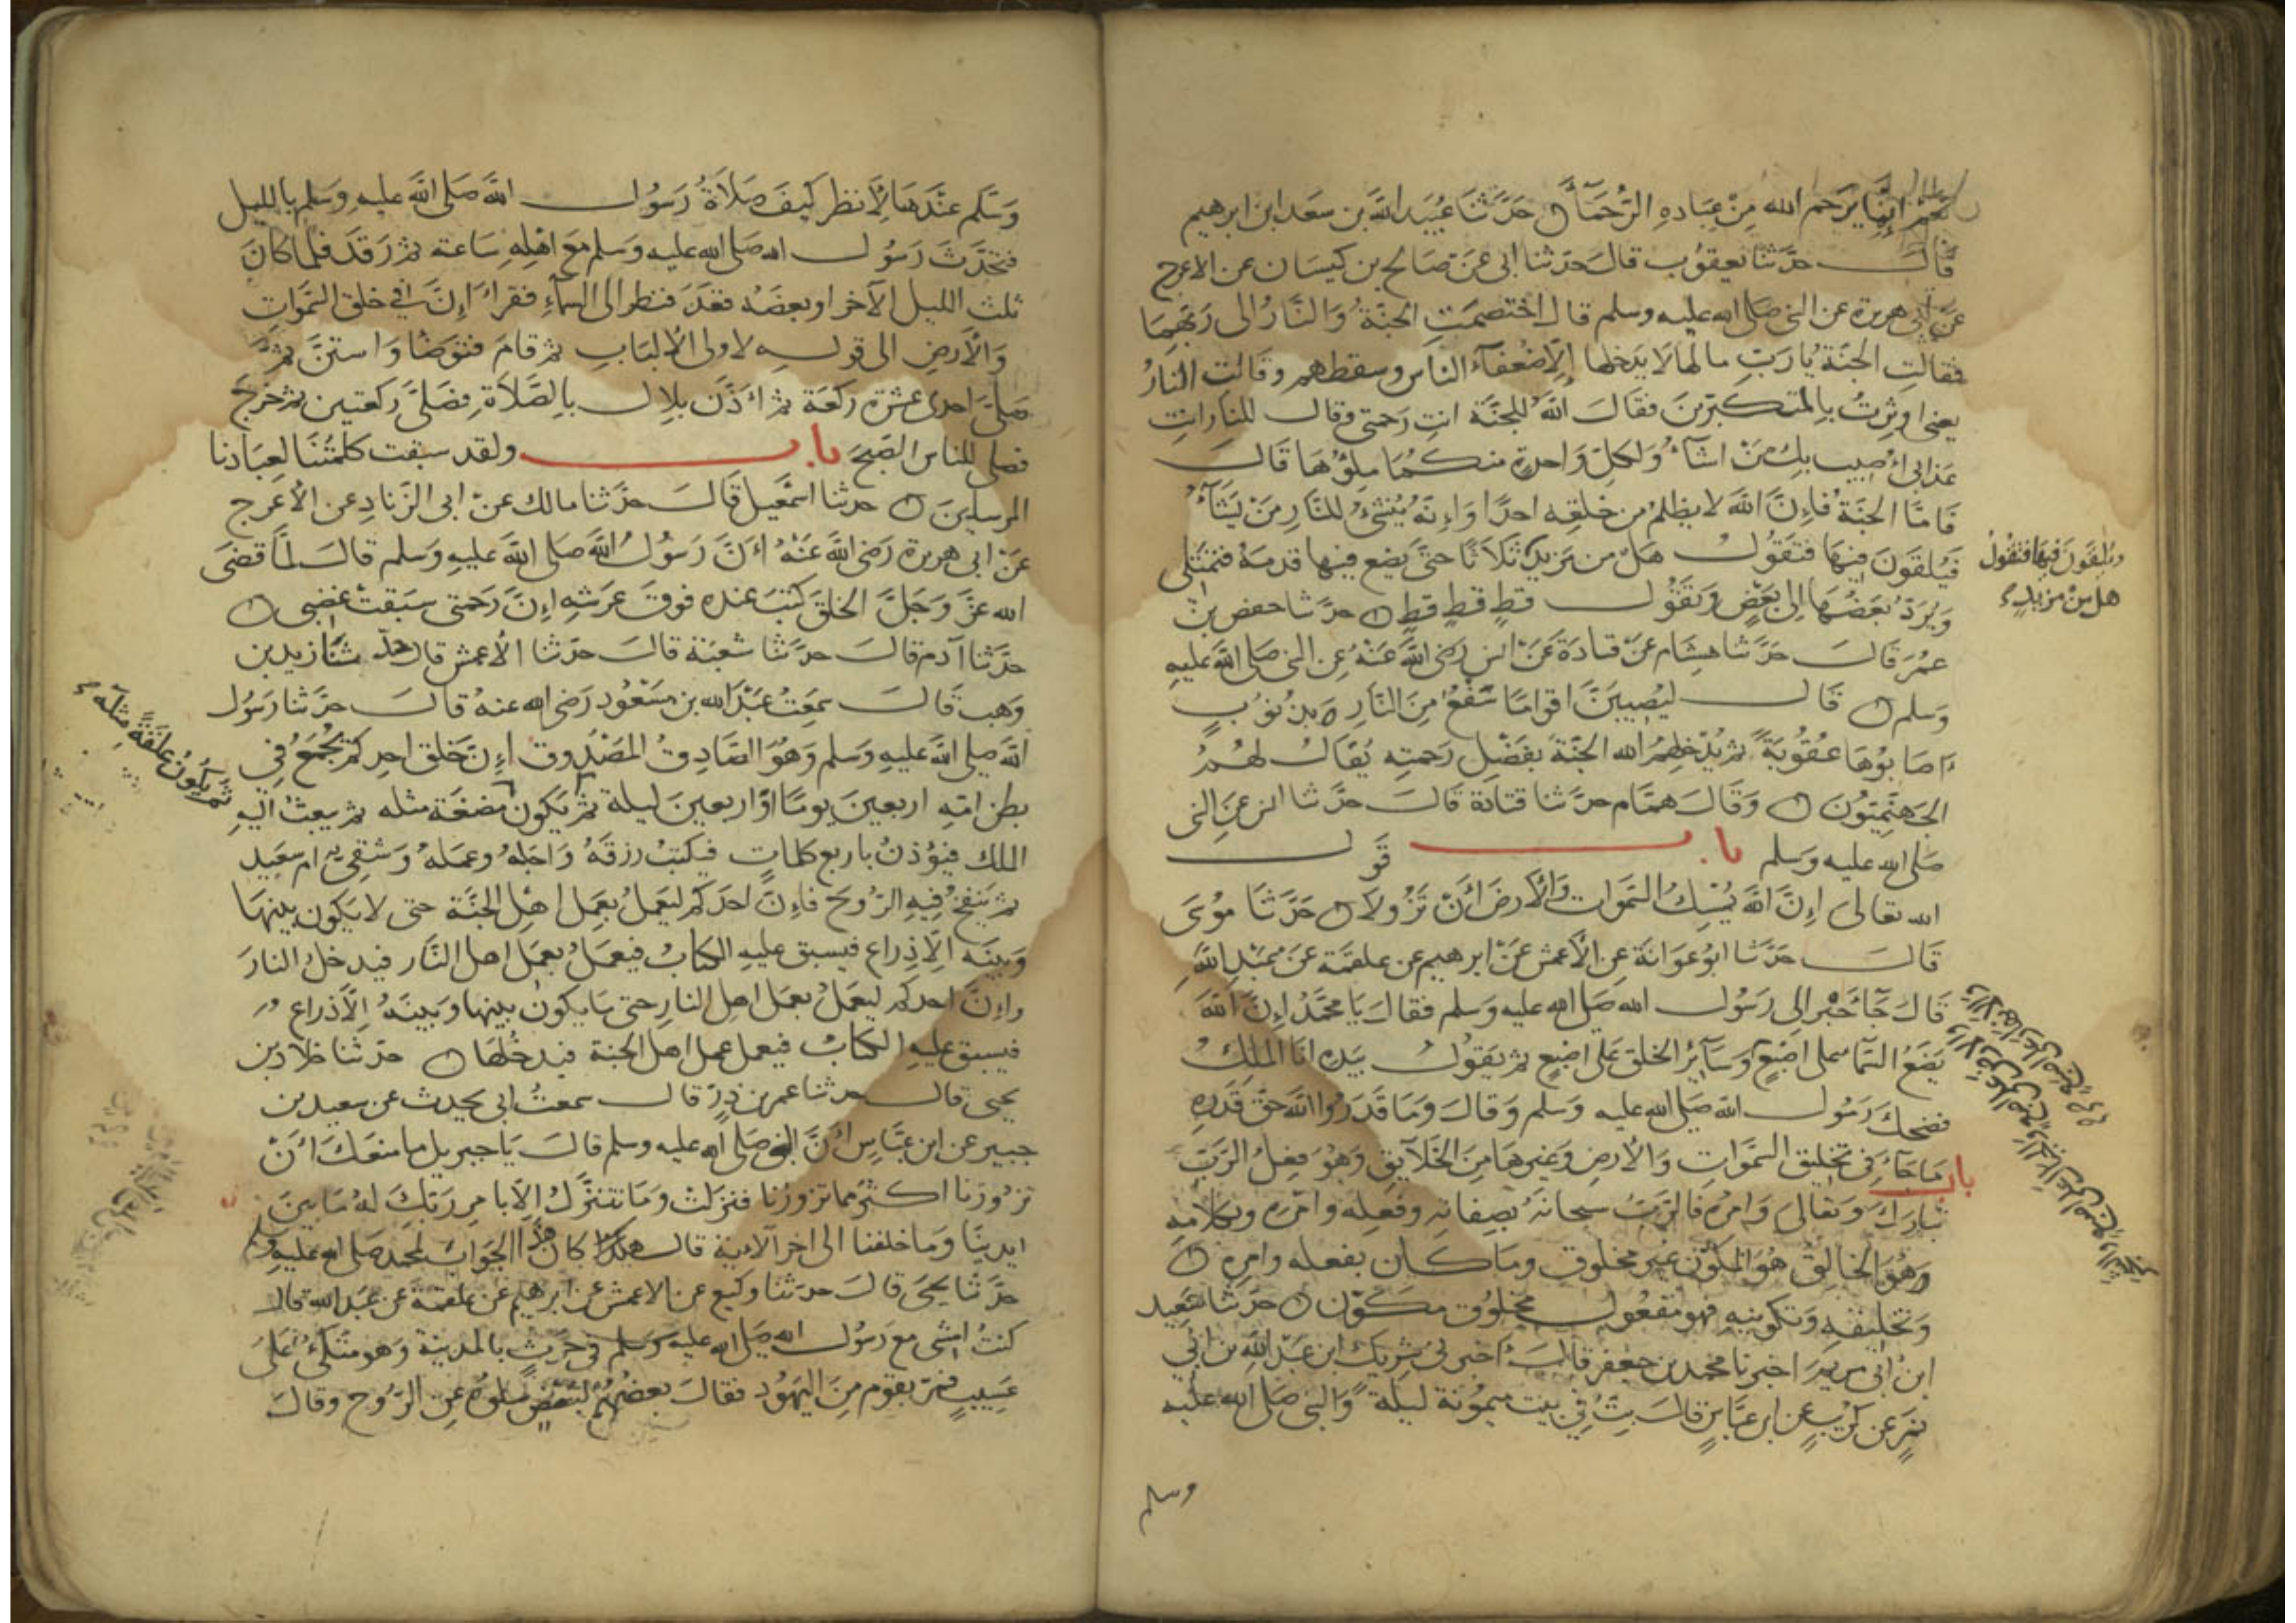 إنما يرحم الله من عباده الرحمآء حدثنا عبيد الله بن سعد ابن ابرهيم
قال حدثنا يعقوب قال حدثنا ابى عن صالح بن كيسان عن الاعرج
عن ابى هريرة عن النبى صلى الله عليه وسلم قال اختصمت الجنة والنار الى ربهما
فقالت الجنة يا رب مالها لا يدخلها إلا ضعفآء الناس وسقطهم وقالت النار
يعنى اوثرت بالمتكبرين فقال الله للجنة انت رحمتى وقال للنار انت
عذابى أصيب بك من اشآء ولكل واحدة منكما ملؤها قال
فاما الجنة فإن الله لا يظلم من خلقه احدا وإنه ينشئ للنار من يشآء
فيلقون فيها فتقول هل من مزيد ثلاثا حتى يضع فيها قدمه فتمتلى
ويلقون فيها فتقول
هل من مزيد
ويرد بعضها إلى بعض وتقول قط قط قط حدثنا حفص بن
عمر قال حدثنا هشام عن قتادة عن انس رضى الله عنه عن النبى صلى الله عليه
وسلم قال ليصيبن اقواما سفع من النار بذنوب
أصابوها عقوبة ثم يدخلهم الله الجنة بفضل رحمته يقال لهم
الجهنميون وقال همام حدثنا قتادة قال حدثنا انس عن النبى
صلى الله عليه وسلم باب قول
الله تعالى إن الله يمسك السموات والأرض أن تزولا حدثنا موسى
قال حدثنا ابو عوانة عن الأعمش عن ابرهيم عن علقمة عن عبد الله
قال جآء حبر الى رسول الله صلى الله عليه وسلم فقال يا محمد إن الله
يضع السمآء على اصبع وسآير الخلق على اصبع ثم يقول بيده انا الملك
فضحك رسول الله صلى الله عليه وسلم وقال وما قدروا الله حق قدره
باب ما جآء فى تخليق السموات والأرض وغيرها من الخلآيق وهو فعل الرب
تبارك وتعالى وامره فالرب سبحانه بصفاته وفعله وامره وكلامه
وهو الخالق هو المكون غير مخلوق وما كان بفعله وامره
وتخليقه وتكوينه فهو مفعول مخلوق مكون حدثنا سعيد
ابن ابى مريم اخبرنا محمد بن جعفر قال أخبرنى شريك ابن عبد الله بن ابى
نمر عن كريب عن ابن عباس قال بت فى بيت ميمونة ليلة والنبى صلى الله عليه
وسلم
وسلم عندها لأنظر كيف صلاة رسول الله صلى الله عليه وسلم بالليل
فتحدث رسول الله صلى الله عليه وسلم مع اهله ساعة ثم رقد فلما كان
ثلث الليل الآخر او بعضه فقعد فنظر الى السمآء فقرأ إن فى خلق السموات
والأرض الى قوله لاولى الألباب ثم قام فتوضا واستن ثم
صلى احدى عشرة ركعة ثم أذن بلال بالصلاة فصلى ركعتين ثم خرج
فصلى للناس الصبح باب ولقد سبقت كلمتنا لعبادنا
المرسلين حدثنا اسمعيل قال حدثنا مالك عن ابى الزناد عن الأعرج
عن ابى هريرة رضى الله عنه أن رسول الله صلى الله عليه وسلم قال لما قضى
الله عز وجل الخلق كتب عنده فوق عرشه إن رحمتى سبقت غضبى
حدثنا آدم قال حدثنا شعبة قال حدثنا الأعمش قال حدثنا زيد بن
وهب قال سمعت عبد الله بن مسعود رضى الله عنه قال حدثنا رسول
الله صلى الله عليه وسلم وهو الصادق المصدوق إن خلق احدكم يجمع في
بطن امه اربعين يوما او اربعين ليلة ثم يكون مضغة مثله ثم يبعث اليه
ثم يكون علقة مثله
الملك فيؤذن باربع كلمات فيكتب رزقه واجله وعمله وشقى ام سعيد
ثم ينفخ فيه الروح فإن احدكم ليعمل بعمل اهل الجنة حتى لا يكون بينها
وبينه إلا ذراع فيسبق عليه الكتاب فيعمل بعمل اهل النار فيدخل النار
وإن احدكم ليعمل بعمل اهل النار حتى ما يكون بينها وبينه إلا ذراع
فيسبق عليه الكتاب فيعمل عمل اهل الجنة فيدخلها حدثنا خلاد بن
يحيى قال حدثنا عمر بن ذر قال سمعت ابى يحدث عن سعيد بن
جبير عن ابن عباس أن النبى صلى الله عليه وسلم قال يا جبريل ما منعك أن
تزورنا اكثر مما تزورنا فنزلت وما نتنزل إلا بامر ربك له ما بين
ايدينا وما خلفنا الى اخر الآية قال هذا كان الجواب لمحمد صلى الله عليه وسلم
حدثنا يحيى قال حدثنا وكيع عن الاعمش عن ابرهيم عن علقمة عن عبد الله قال
كنت امشى مع رسول الله صلى الله عليه وسلم فى حرث بالمدينة وهو متكئ على
عسيب فمر بقوم من اليهود فقال بعضهم لبعض سلوه عن الروح وقال